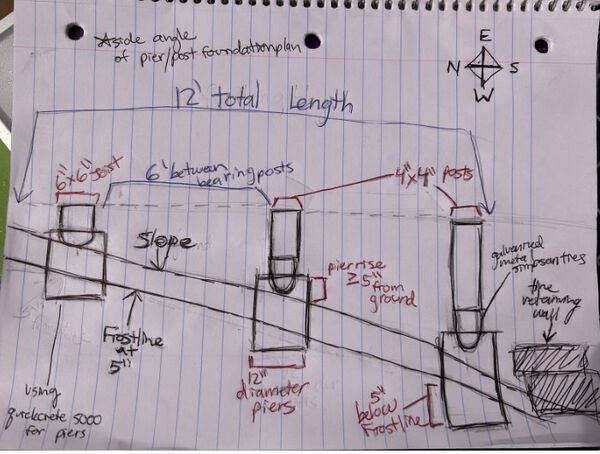 Aside angle
of pier/post foundation plan
E
N S
W
12' total Length
6"x6" post
6' between
bearing posts
4"x4" posts
Slope
pier rise
≥5" from
ground
galvanized
metal
simpson ties
the
retaining
wall
Frostline
at
5"
12"
diameter
piers
5"
below
Frostline
using
quickcrete 5000
for piers